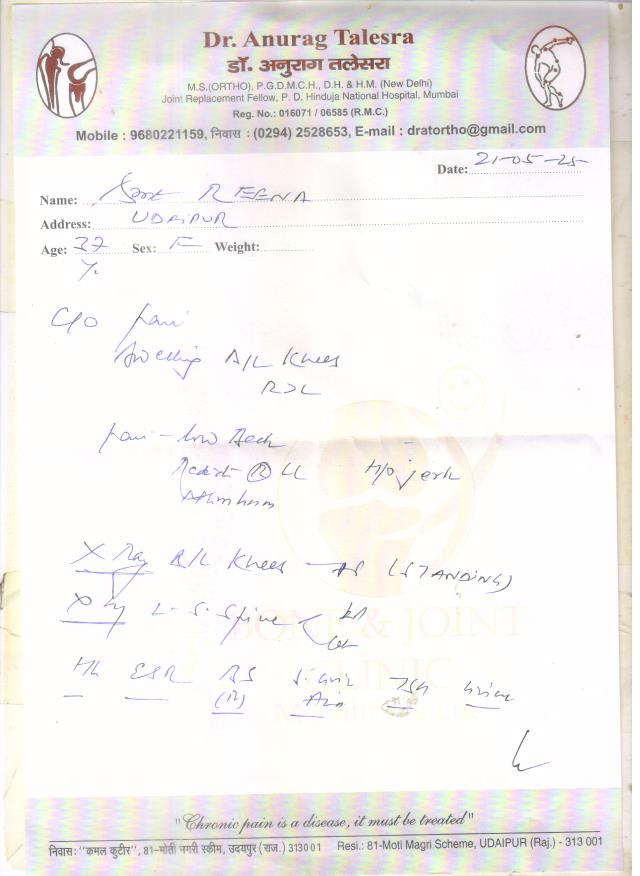 Dr. Anurag Talesra
डॉ. अनुराग तलेसरा
M.S.(ORTHO), P.G.D.M.C.H., D.H. & H.M. (New Delhi)
Joint Replacement Fellow, P. D. Hinduja National Hospital, Mumbai
Reg. No.: 016071 / 06585 (R.M.C.)
Mobile : 9680221159, निवास : (0294) 2528653, E-mail : dratortho@gmail.com
Date: 21-05-25
Name: REENA
Address: UDAIPUR
Age: 37 Sex: F Weight:
Y.
C/O pain
Swelling B/L Knees
R>L
pain - low Back
(R) LL H/o jerk
X Ray B/L Knees - AP (STANDING)
X Ray L-S-Spine
BONE & JOINT
CLINIC
Hb ESR BS S. Uric TSH Urine
(R) Acid
"Chronic pain is a disease, it must be treated"
निवास: "कमल कुटीर", 81-मोती मगरी स्कीम, उदयपुर (राज.) 313001 Resi.: 81-Moti Magri Scheme, UDAIPUR (Raj.) - 313 001